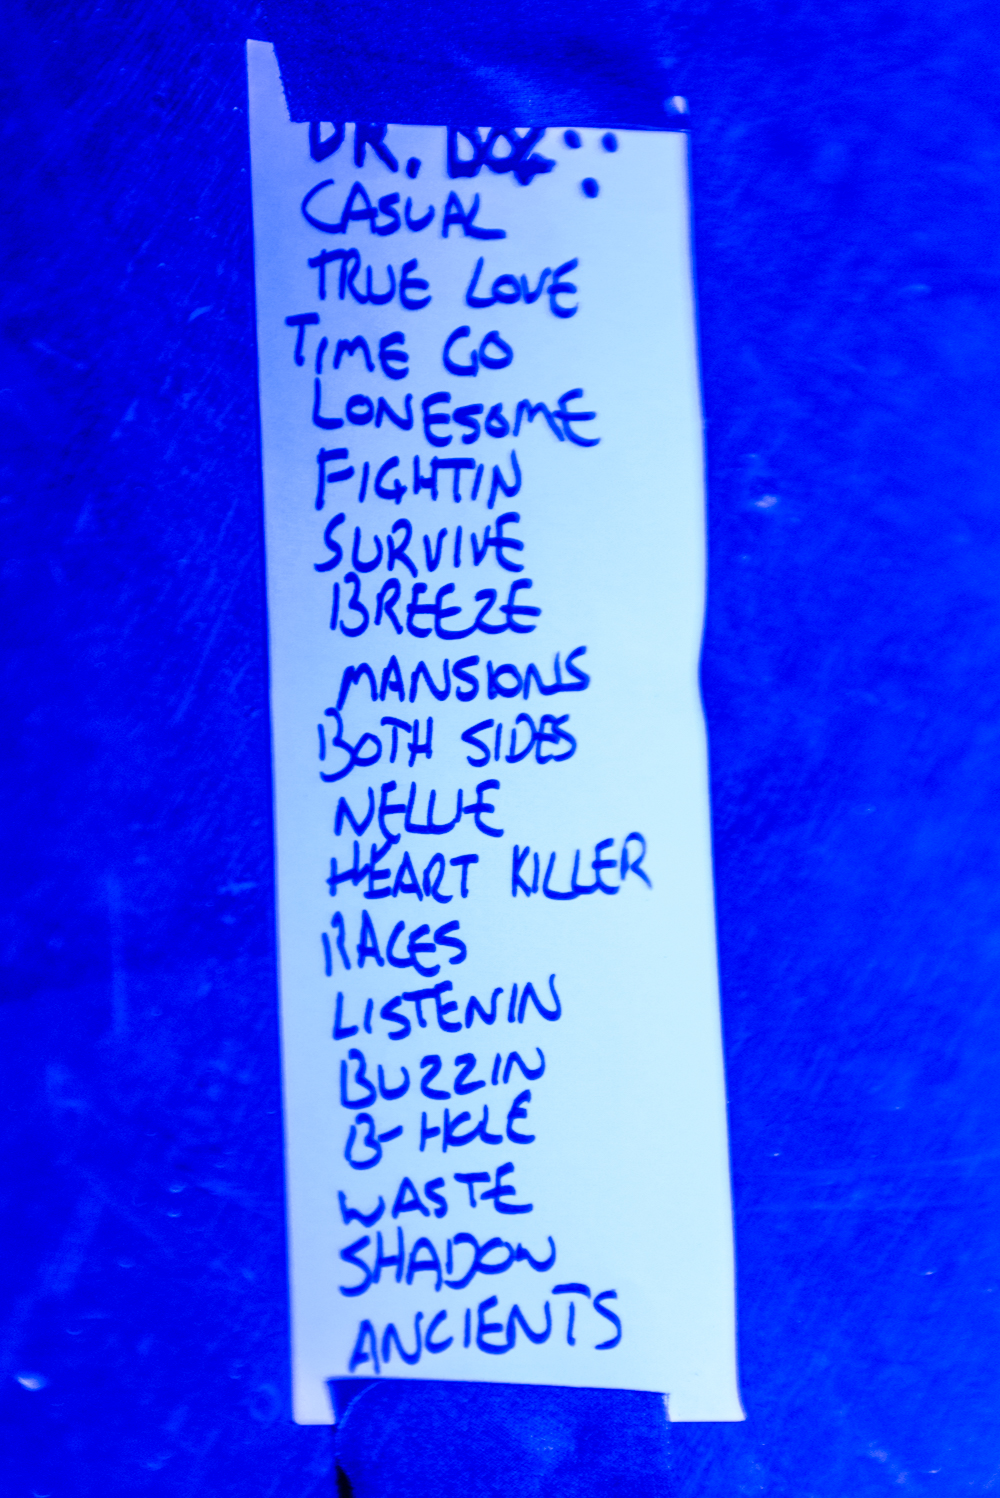 DR. DOG
CASUAL
TRUE LOVE
TIME GO
LONESOME
FIGHTIN
SURVIVE
BREEZE
MANSIONS
BOTH SIDES
NELLIE
HEART KILLER
RACES
LISTENIN
BUZZIN
B-HOLE
WASTE
SHADOW
ANCIENTS